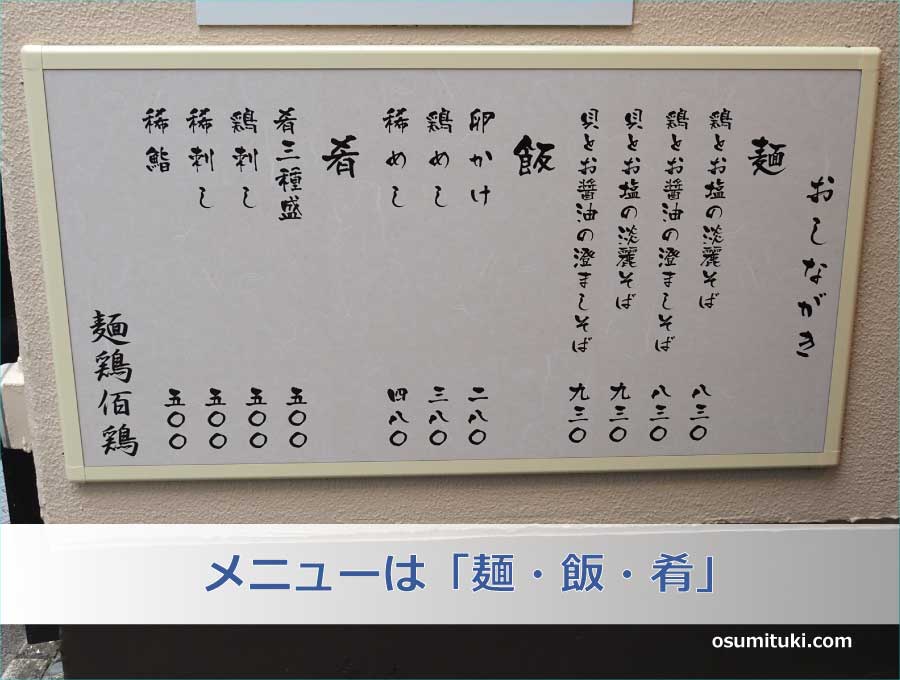 おしながき
麺
鶏とお塩の淡麗そば 八三〇
鶏とお醤油の澄ましそば 八三〇
貝とお塩の淡麗そば 九三〇
貝とお醤油の澄ましそば 九三〇
飯
卵かけ 二八〇
鶏めし 三八〇
稀めし 四八〇
肴
肴三種盛 五〇〇
鶏刺し 五〇〇
稀刺し 五〇〇
稀鮨 五〇〇
麺鶏佰鶏
メニューは「麺・飯・肴」
osumituki.com